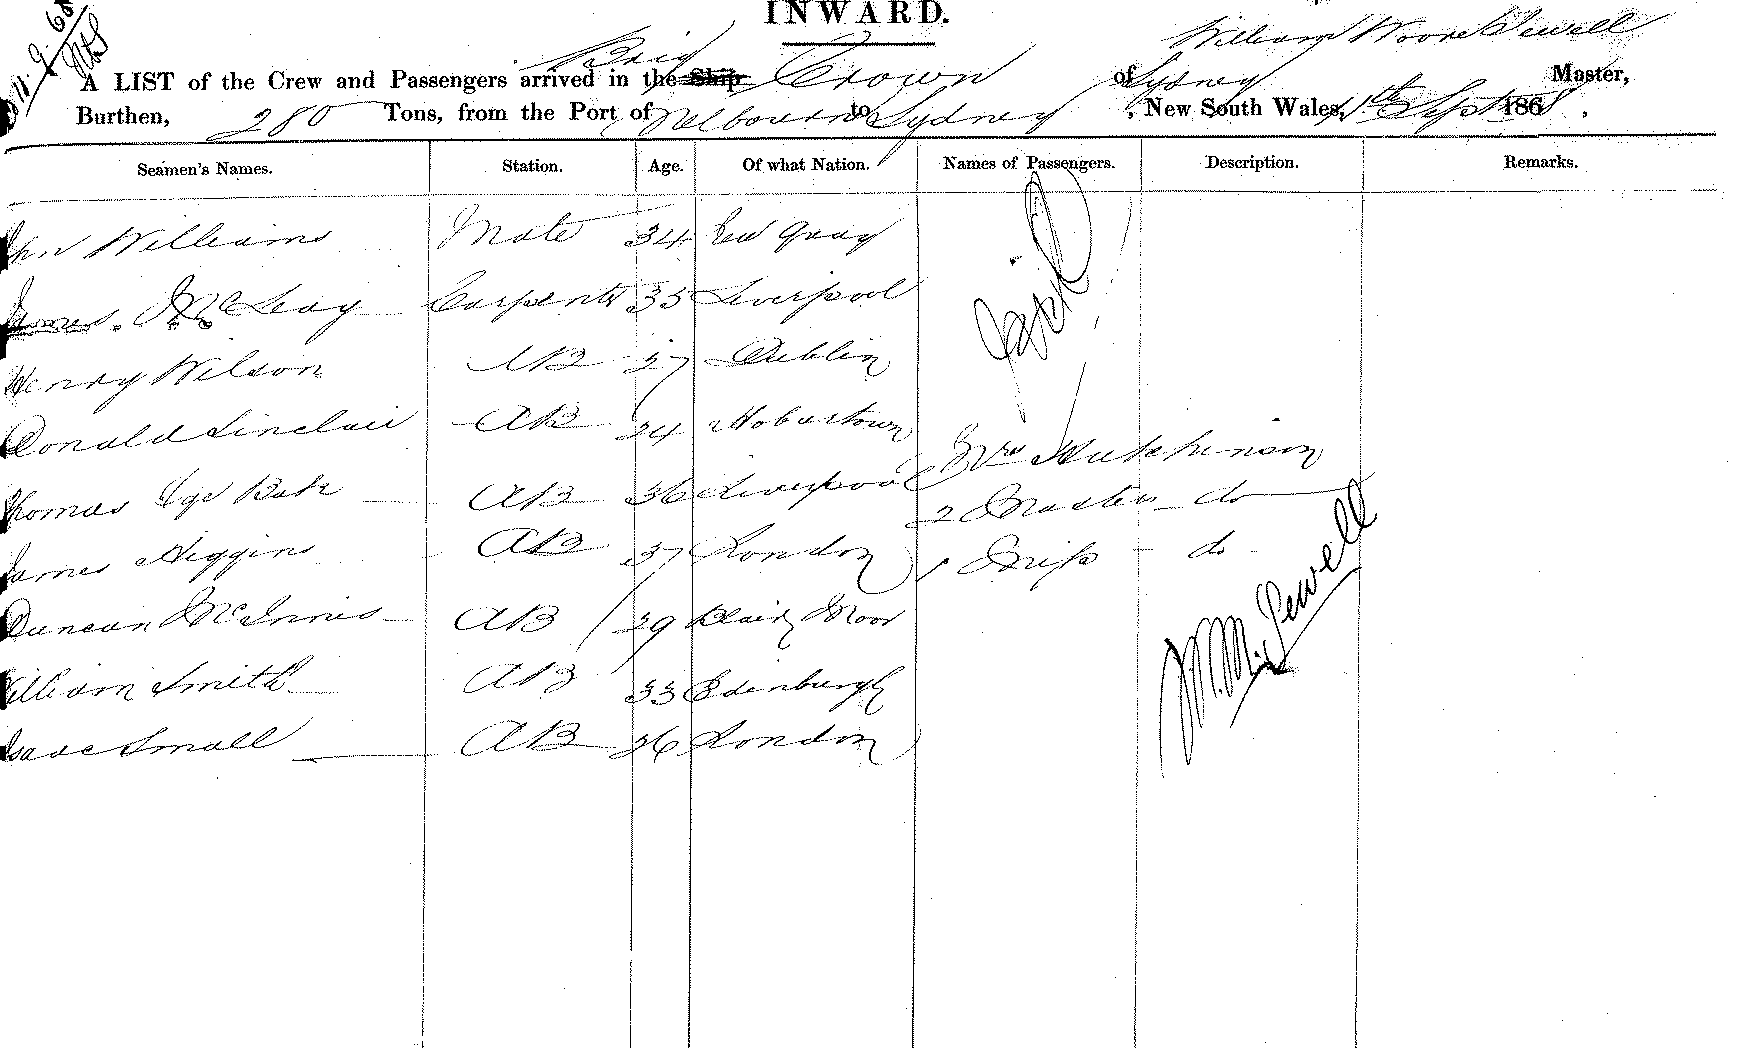 INWARD.
11. 9. 68
William Moore Sewell
A LIST of the Crew and Passengers arrived in the Ship Brig Crown of Sydney Master,
Burthen, 280 Tons, from the Port of Melbourne to Sydney, New South Wales, 11th Sept 1868.
Seamen's Names. Station. Age. Of what Nation. Names of Passengers. Description. Remarks.
hn Williams Mate 34
James McLeay Carpenter 35 Liverpool
Henry Wilson AB 27 Dublin
Donald Sinclair AB 24 Hobartown
Mrs Hutchinson
Thomas AB 36 Liverpool
2 Master do
James Higgins AB 37 London
1 Miss do
Duncan McInnis AB 29 Moor
William Smith AB 33 Edinburgh
Isaac Small AB 26 London
W. M. Sewell